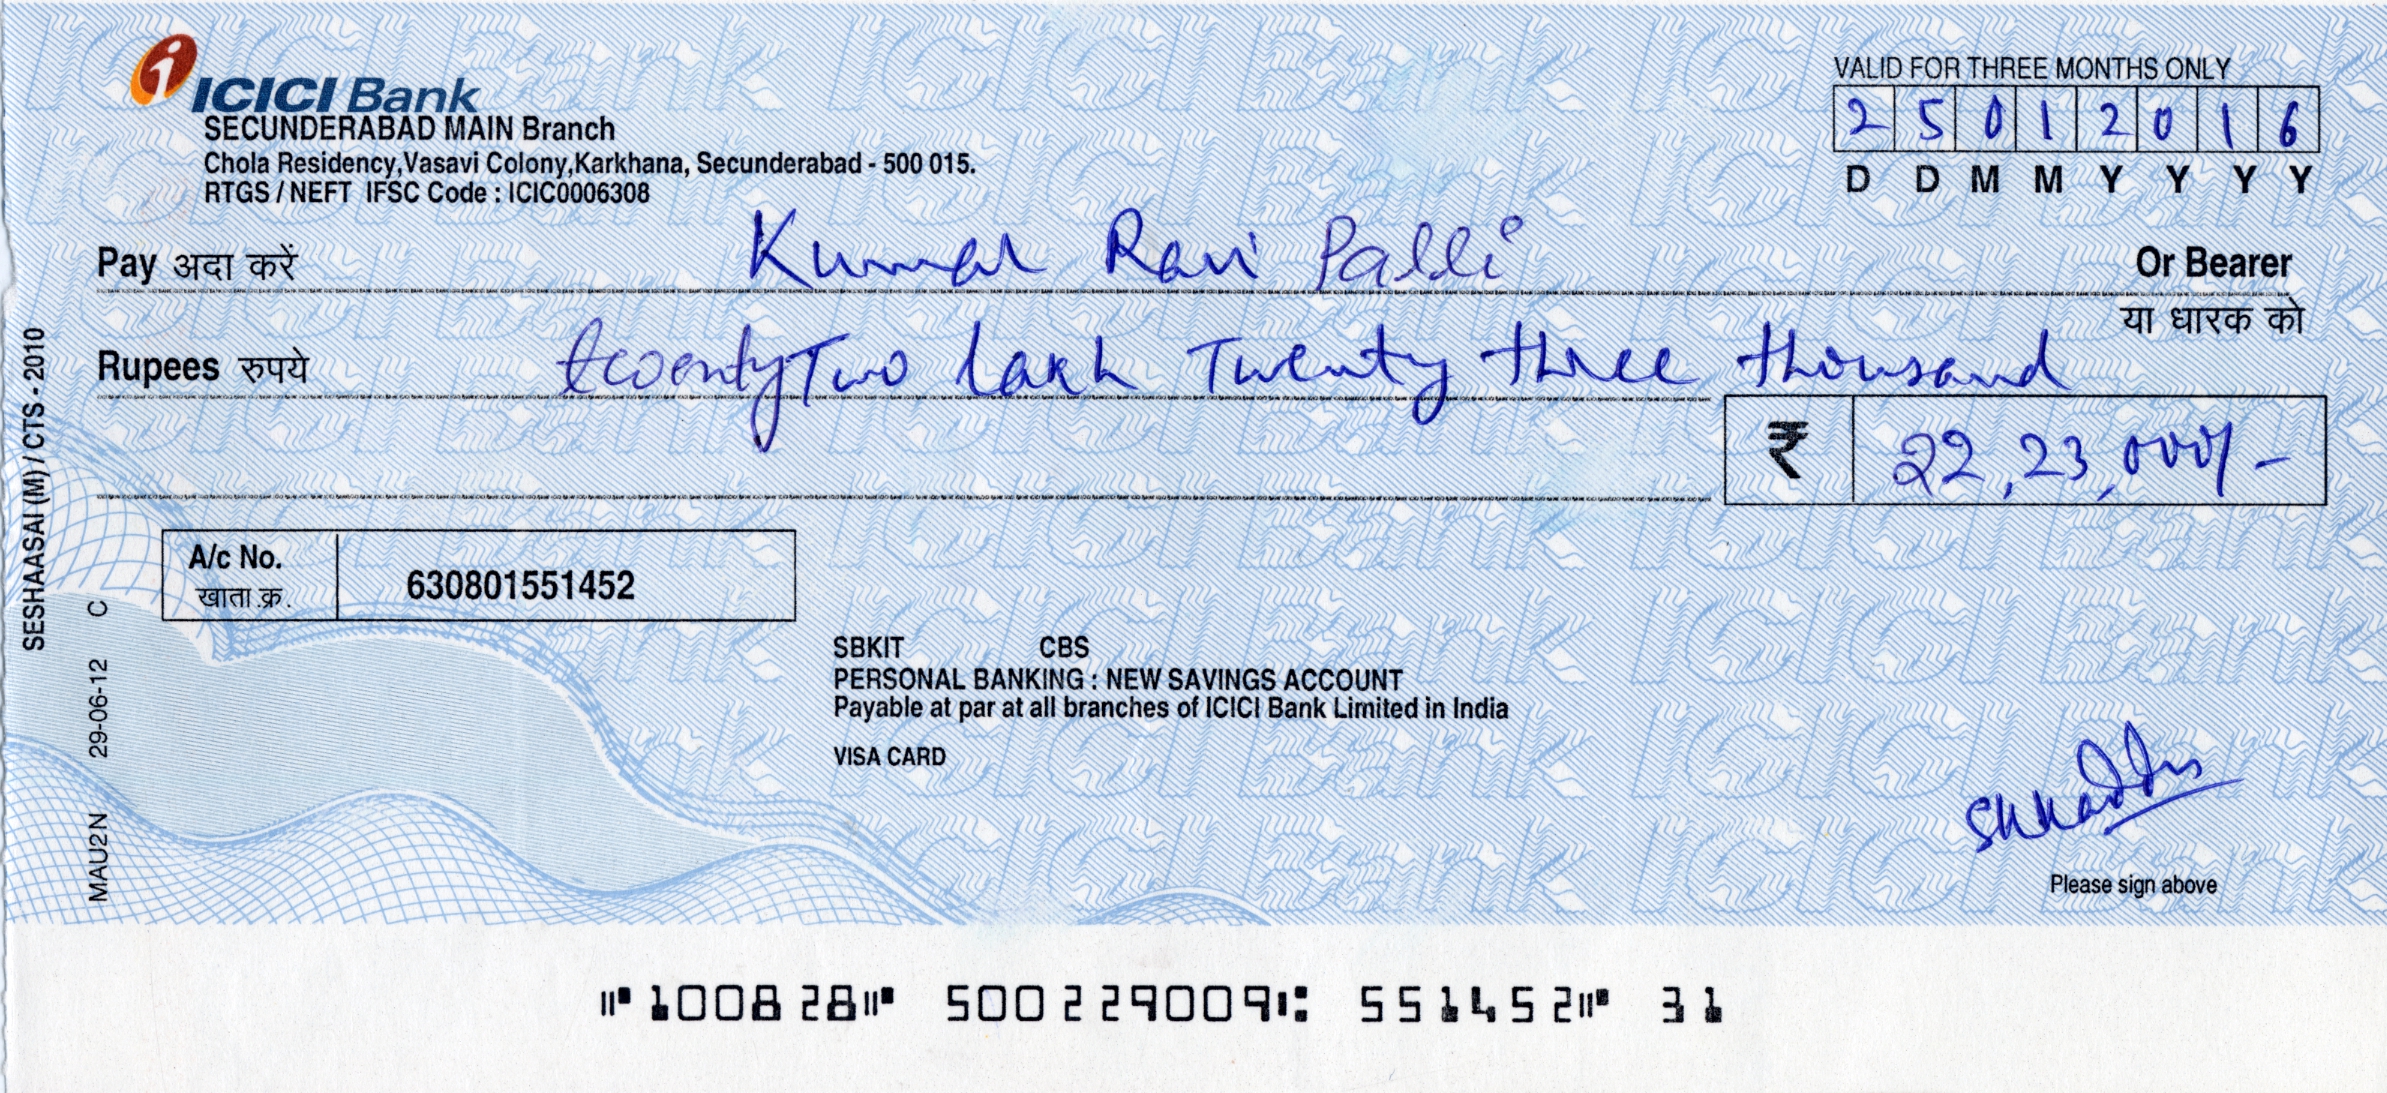 ICICI Bank
SECUNDERABAD MAIN Branch
Chola Residency,Vasavi Colony,Karkhana, Secunderabad - 500 015.
RTGS / NEFT IFSC Code : ICIC0006308
VALID FOR THREE MONTHS ONLY
2 5 0 1 2 0 1 6
D D M M Y Y Y Y
Pay अदा करें Kumar Ravi Palli Or Bearer
या धारक को
Rupees रुपये twenty Two lakh Twenty three thousand
₹ 22,23,000/-
A/c No. 630801551452
खाता.क्र.
SBKIT CBS
PERSONAL BANKING : NEW SAVINGS ACCOUNT
Payable at par at all branches of ICICI Bank Limited in India
VISA CARD
Please sign above
SESHAASAI (M) / CTS - 2010
MAU2N 29-06-12 C
⑈100828⑈ 500229009⑆ 551452⑈ 31